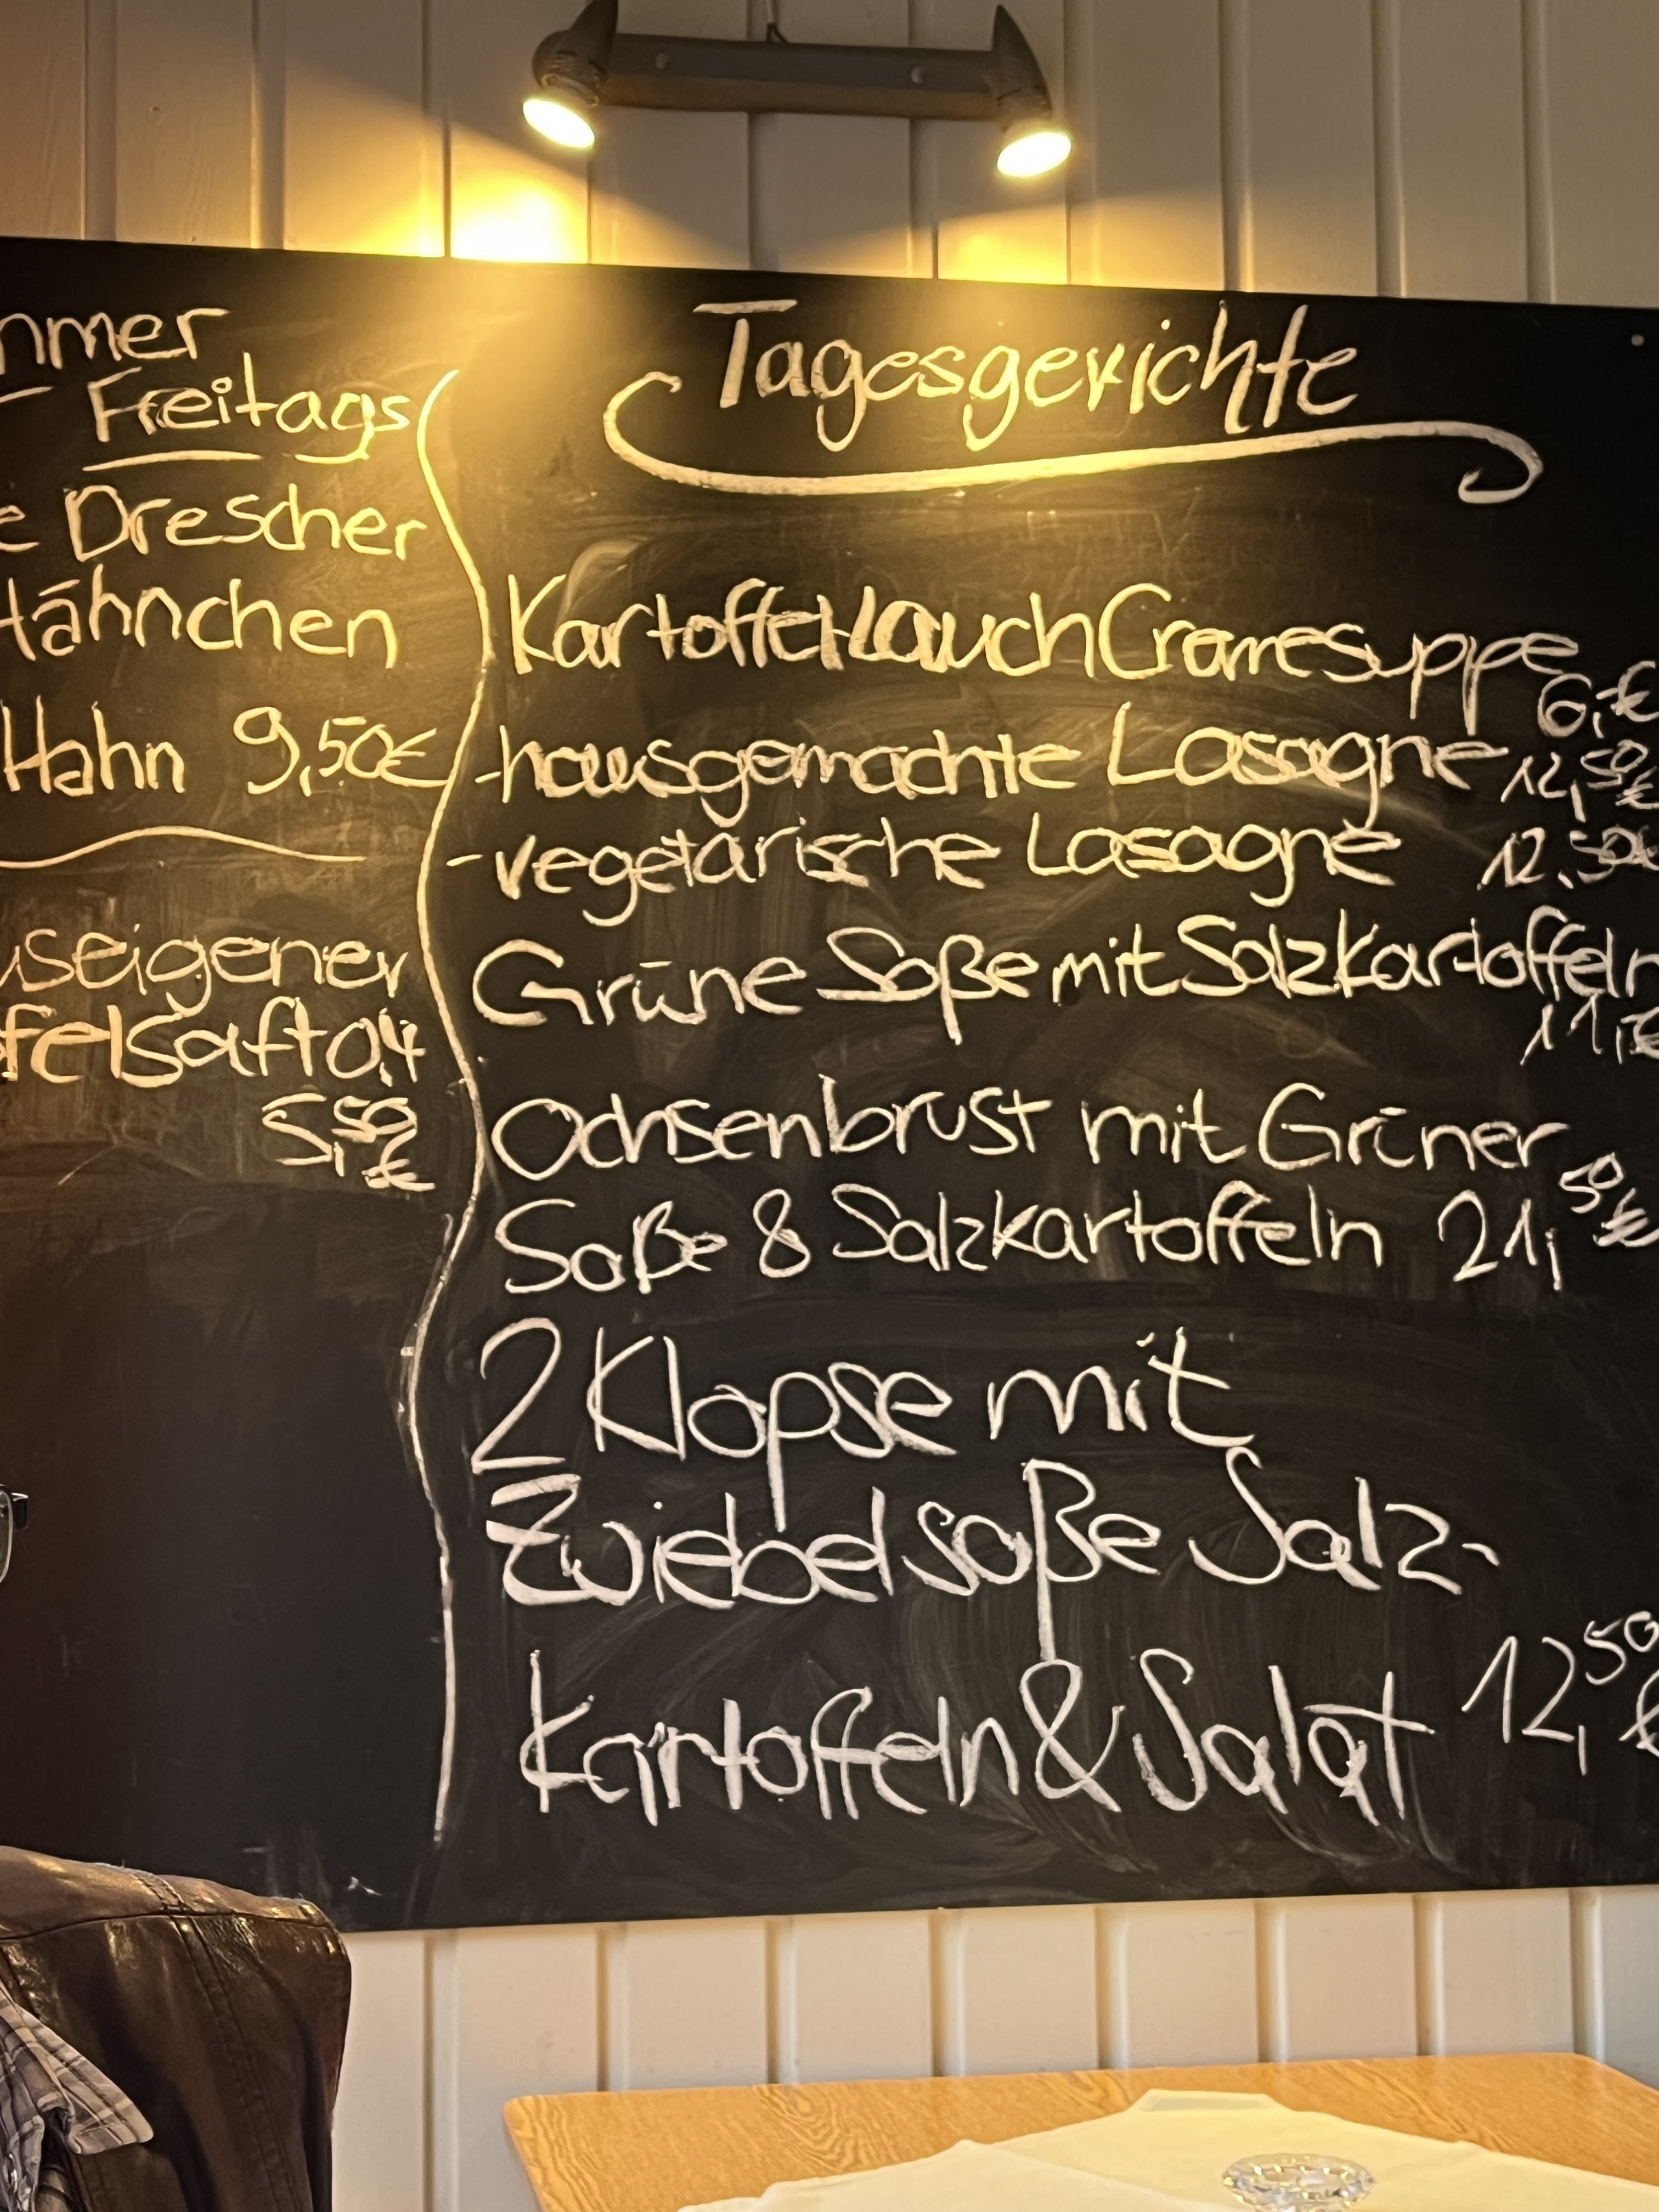 Freitags
Drescher
Hähnchen
Hahn 9,50€
5,50€
Tagesgerichte
Kartoffel-Lauch Cremesuppe
6,-€
-hausgemachte Lasagne 12,50€
-vegetarische Lasagne 12,50€
Grüne Soße mit Salzkartoffeln
11,-€
Ochsenbrust mit Grüner
Soße & Salzkartoffeln 21,50€
2 Klopse mit
Zwiebelsoße Salz-
kartoffeln & Salat 12,50€